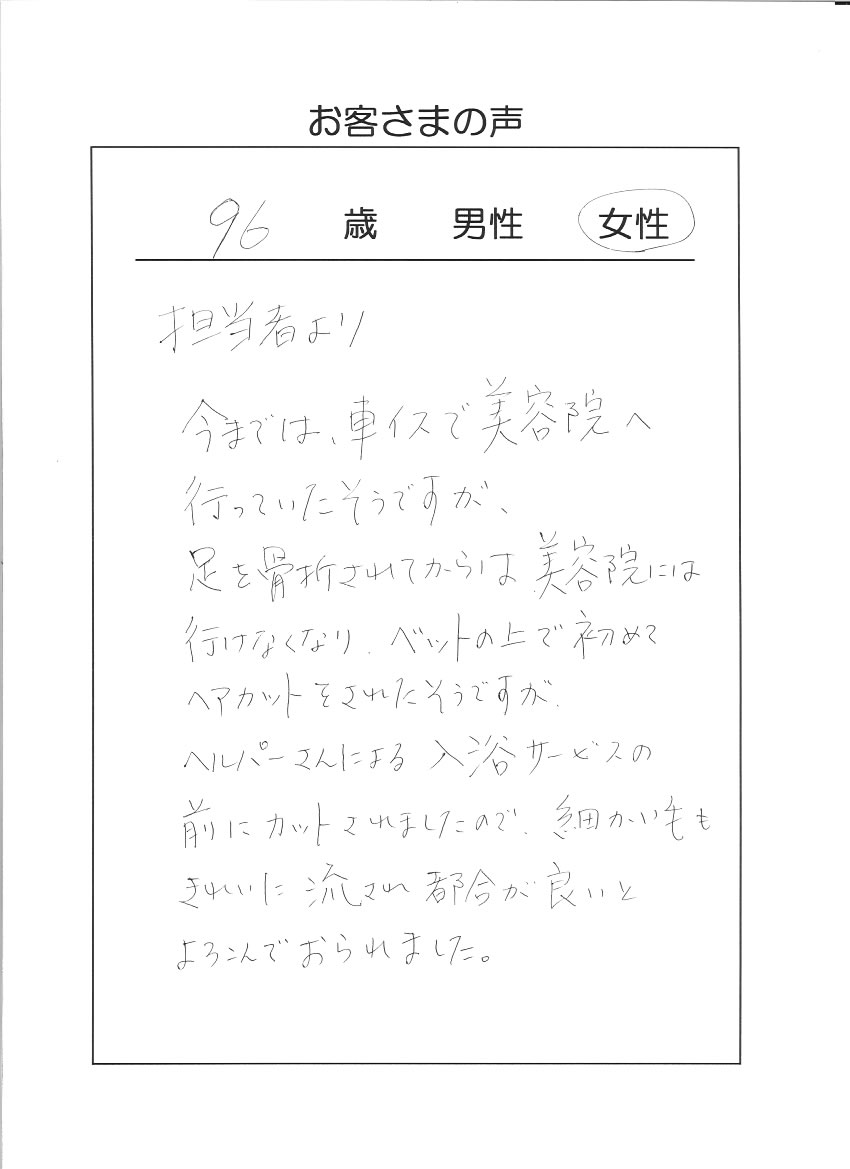 お客さまの声
96 歳 男性 女性
担当者より
今までは、車イスで美容院へ
行っていたそうですが、
足を骨折されてからは美容院には
行けなくなり、ベットの上で初めて
ヘアカットをされたそうですが、
ヘルパーさんによる入浴サービスの
前にカットされましたので、細かい毛も
きれいに流され都合が良いと
よろこんでおられました。